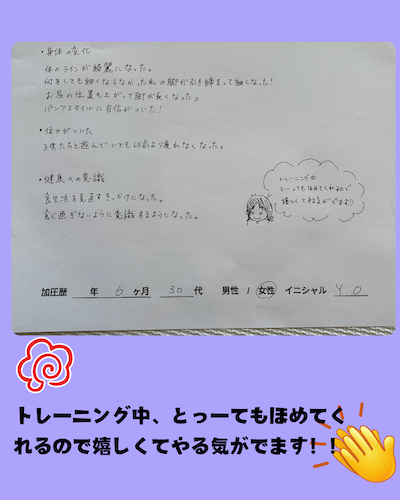 ・身体の変化
体のラインが綺麗になった。
何をしても細くならなかった私の脚が引き締まって細くなった!
お尻の位置も上がって脚が長くなった。
パンツスタイルに自信がついた!
・体力がついた
子供たちと遊んでいても以前より疲れなくなった。
・健康への意識
食生活を見直すきっかけになった。
食べ過ぎないように意識するようになった。
トレーニング中
とーってもほめてくれるので
嬉しくてやる気がでます!!
加圧歴 年 6 ヶ月 30 代 男性 / 女性 イニシャル Y.O
トレーニング中、とっーてもほめてく
れるので嬉しくてやる気がでます!!